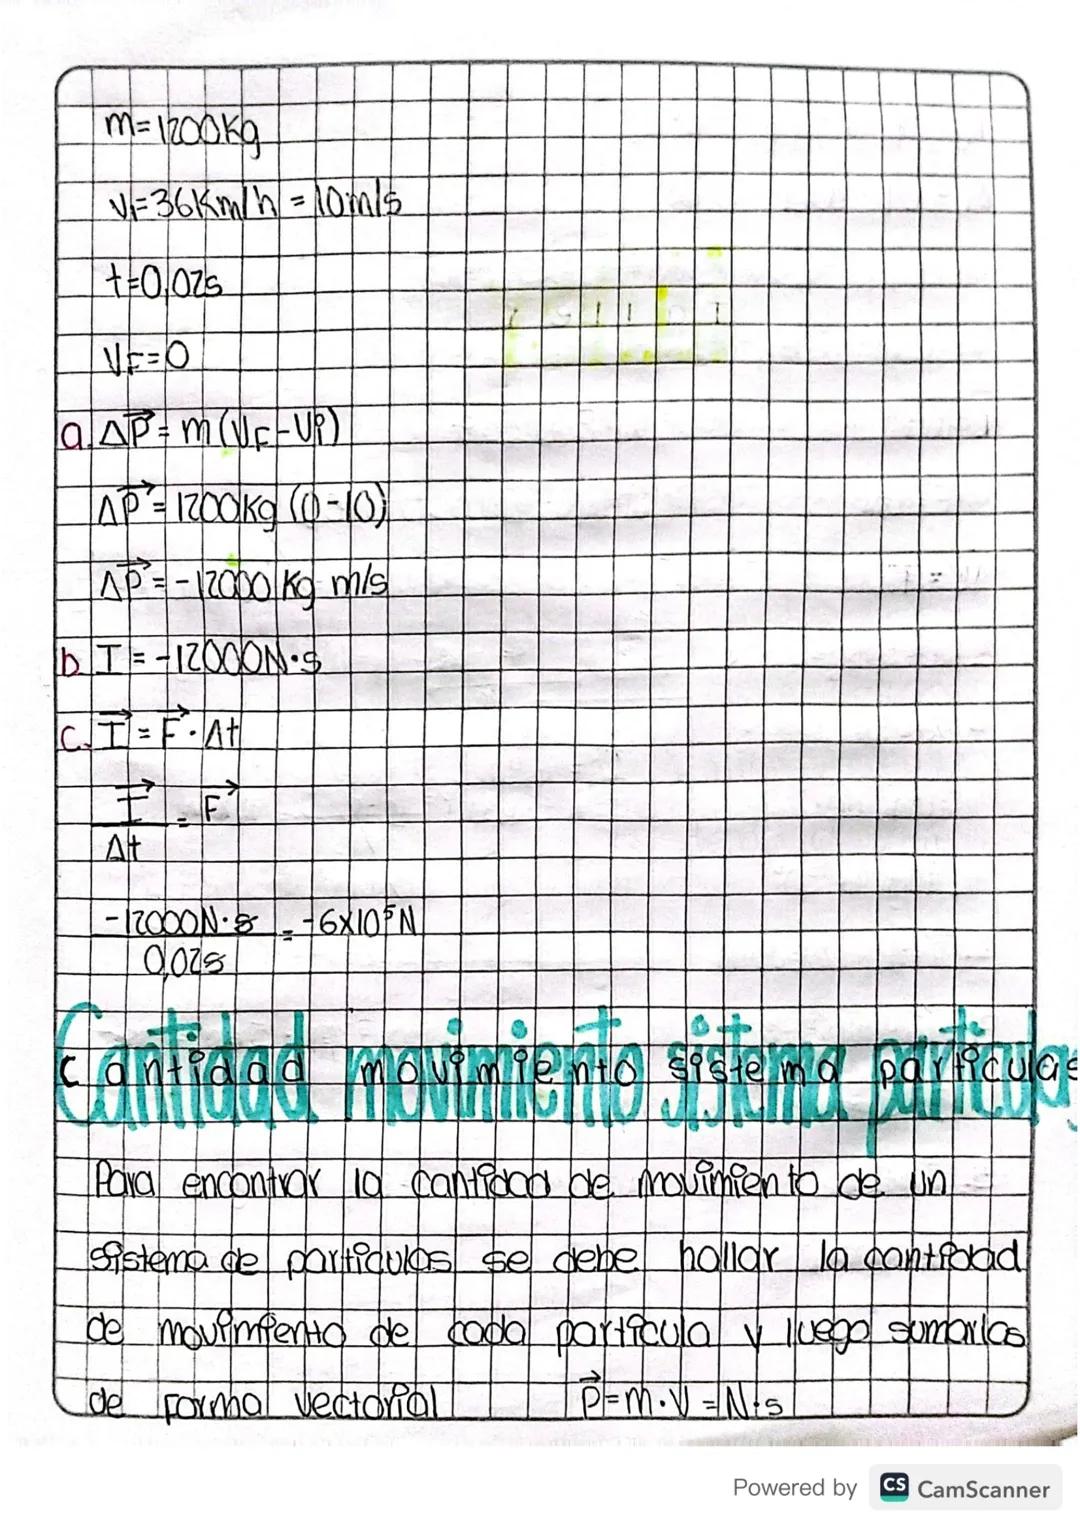 m=1200Kg
Vi=36Km/h = 10m/s
t=0,02s
VF=0
a. ΔP⃗ = m(VF-Vi)
ΔP⃗ = 1200kg (0-10)
ΔP⃗ = -12000 Kg m/s
b. I = -12000N·s
c. I⃗ = F⃗ · Δt
I⃗ = F⃗
Δt
-12000N·s = -6x10⁵N
0,02s
Cantidad movimiento sistema particulas
Para encontrar la cantidad de movimiento de un
sistema de particulas se debe hallar la cantidad
de movimiento de cada particula y luego sumarlas
de forma vectorial P⃗=m·V = N·s
Powered by CS CamScanner